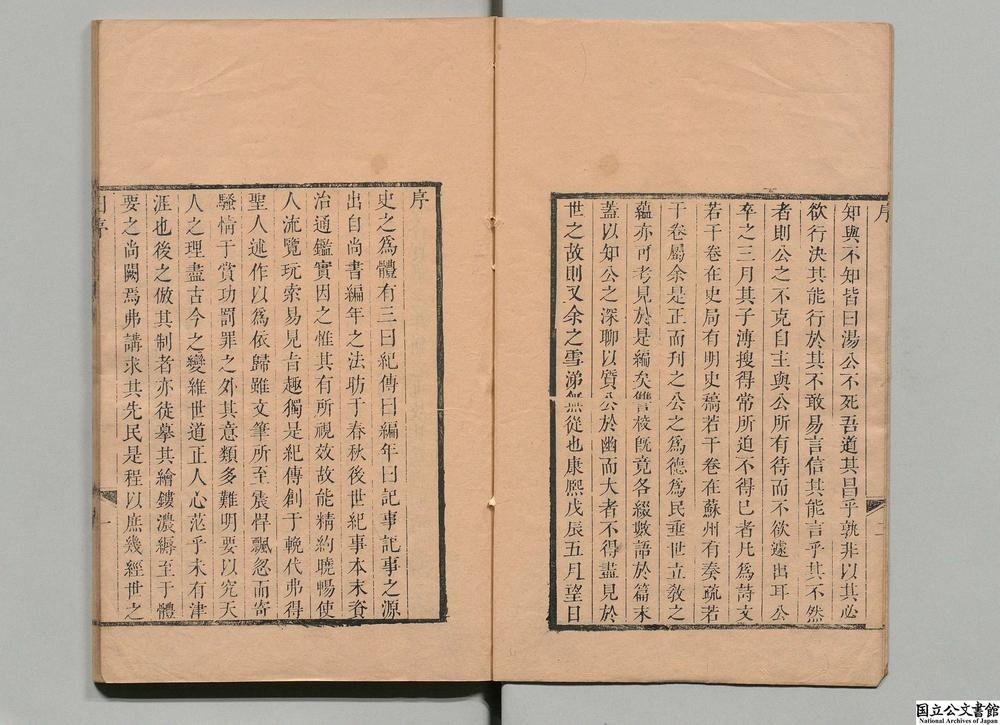 序
知與不知皆曰湯公不死吾道其昌乎孰非以其必
欲行決其能行於其不敢易言信其能言乎其不然
者則公之不克自主與公所有待而不欲遽出耳公
卒之三月其子溥搜得常所迫不得已者凡為詩文
若干卷在史局有明史稿若干卷在蘇州有奏疏若
干卷屬余是正而刊之公之為德為民垂世立敎之
蘊亦可考見於是編矣讐校旣竟各綴數語於篇末
蓋以知公之深聊以質公於幽而大者不得盡見於
世之故則又余之雪涕無從也康熙戊辰五月望日
二
序
史之為體有三曰紀傳曰編年曰記事記事之源
出自尚書編年之法昉于春秋後世紀事本末資
治通鑑實因之惟其有所視效故能精約曉暢使
人流覽玩索易見旨趣獨是紀傳創于輓代弗得
聖人述作以為依歸雖文筆所至震悍飄忽而寄
騷情于賞功罰罪之外其意類多難明要以究天
人之理盡古今之變維世道正人心茫乎未有津
涯也後之倣其制者亦徒摹其繪鏤濃縟至于體
要之尚闕焉弗講求其先民是程以庶幾經世之
序
一
国立公文書館
National Archives of Japan